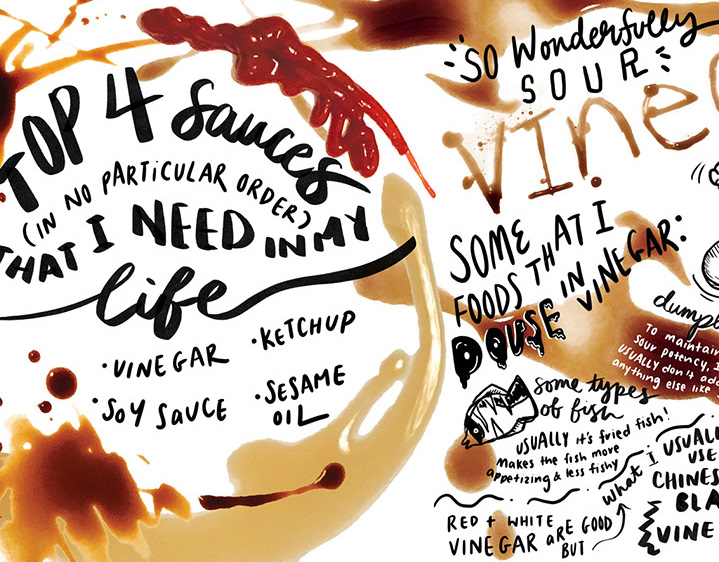 TOP 4 sauces
(IN NO PARTICULAR ORDER)
THAT I NEED IN MY
life
· VINEGAR
· KETCHUP
· SOY SAUCE
· SESAME
OIL
SO Wonderfully
SOUR
SOME
FOODS THAT I
DOUSE IN VINEGAR:
To maintain
sour potency, I
USUALLY don't add
anything else like
some types
of fish
USUALLY it's fried fish!
Makes the fish more
appetizing & less fishy
RED + WHITE
VINEGAR aRE GOOD
BUT
what I USUALLY
USE
CHINES
BLA
VINE